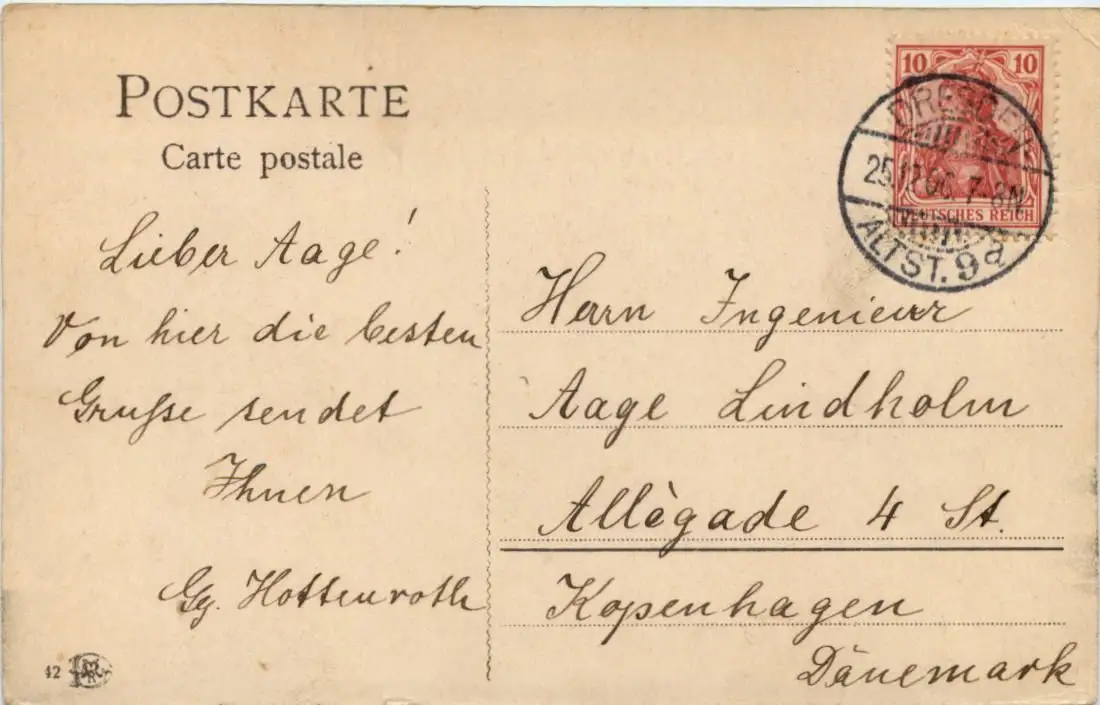 POSTKARTE
Carte postale
Lieber Aage!
Von hier die besten
Grüsse sendet
Ihnen
Gg. Hottenroth
42
10 10
DEUTSCHES REICH
DRESDEN
7-8N
ALTST. 9 d
Herrn Ingenieur
Aage Lindholm
Allègade 4 St.
Kopenhagen
Dänemark